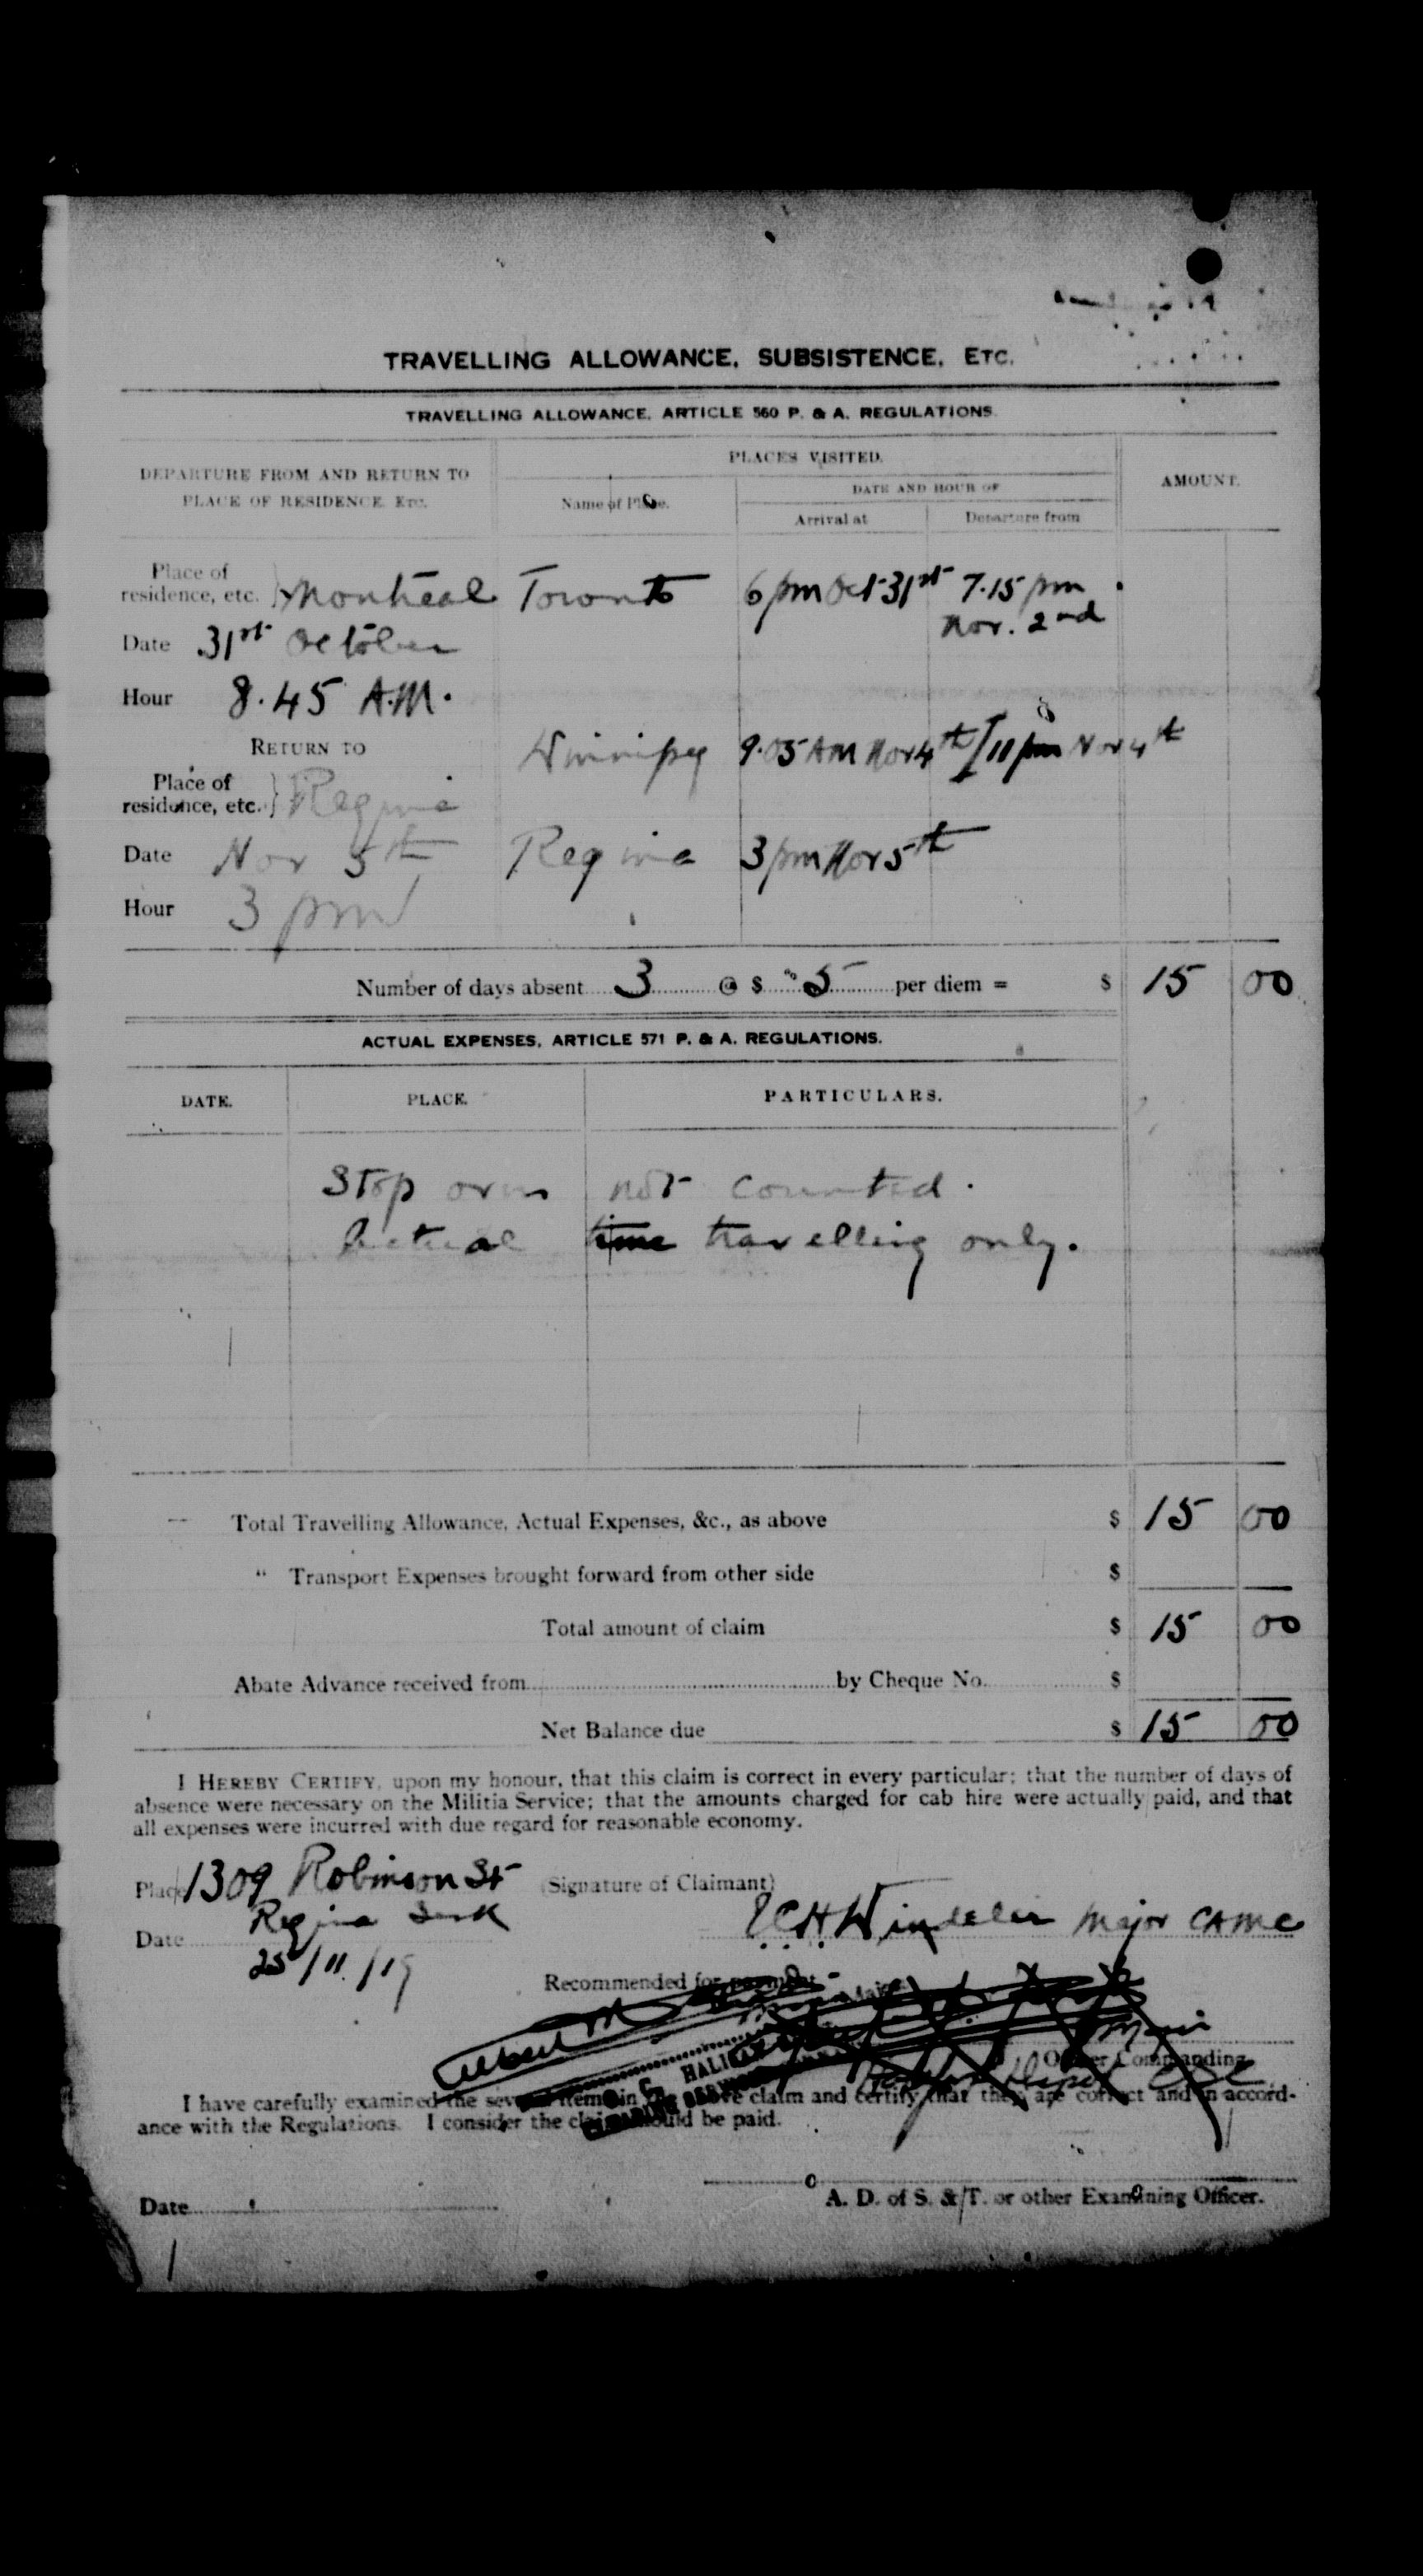 TRAVELLING ALLOWANCE, SUBSISTENCE, ETC.
TRAVELLING ALLOWANCE, ARTICLE 560 P. & A. REGULATIONS.
DEPARTURE FROM AND RETURN TO
PLACE OF RESIDENCE, ETC.
PLACES VISITED.
Name of Place.
DATE AND HOUR OF
Arrival at
Departure from
AMOUNT.
Place of
residence, etc. } Montreal Toronto 6 pm Oct 31st 7.15 pm
Nov. 2nd
Date 31st October
Hour 8.45 A.M.
RETURN TO
Winnipeg 9.05 AM Nov 4th 11 pm Nov 4th
Place of
residence, etc. } Regina
Date Nov 5th
Regina 3 pm Nov 5th
Hour 3 pm
Number of days absent 3 @ $ 5 per diem = $ 15 00
ACTUAL EXPENSES, ARTICLE 571 P. & A. REGULATIONS.
DATE. PLACE. PARTICULARS.
Stop overs not counted.
Actual time travelling only.
Total Travelling Allowance, Actual Expenses, &c., as above $ 15 00
" Transport Expenses brought forward from other side $
Total amount of claim $ 15 00
Abate Advance received from by Cheque No. $
Net Balance due $ 15 00
I HEREBY CERTIFY, upon my honour, that this claim is correct in every particular; that the number of days of
absence were necessary on the Militia Service; that the amounts charged for cab hire were actually paid, and that
all expenses were incurred with due regard for reasonable economy.
Place 1309 Robinson St (Signature of Claimant)
Regina Sask
Date
25/11/19
Windeler Major CAMC
Recommended for payment
Officer Commanding
I have carefully examined the several items in the above claim and certify that they are correct and in accord-
ance with the Regulations. I consider the claim should be paid.
Date
A. D. of S. & T. or other Examining Officer.